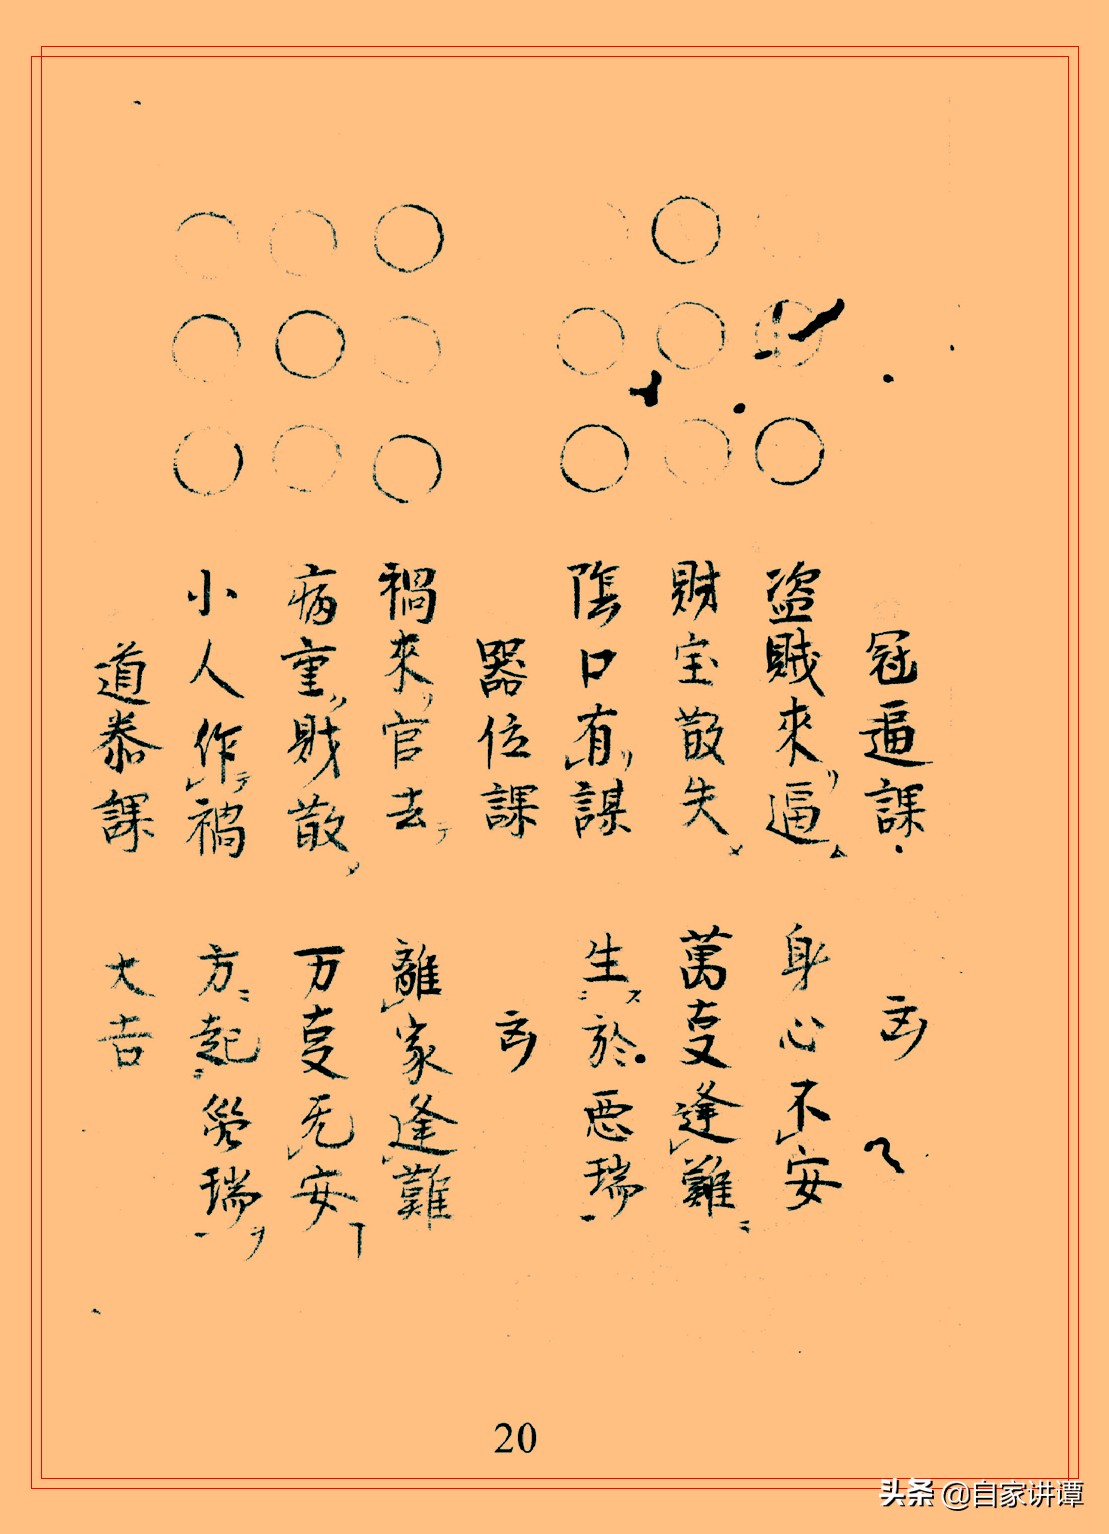 冦逼課 㐫
盗賊來逼 身心不安
財宝散失 萬㕝逢難
陰口有謀 生於悪瑞
器位課 㐫
禍來官去 離家逢難
病重財散 万㕝无安
小人作禍 方起瑞
道泰課 大吉
20
头条 @自家讲谭